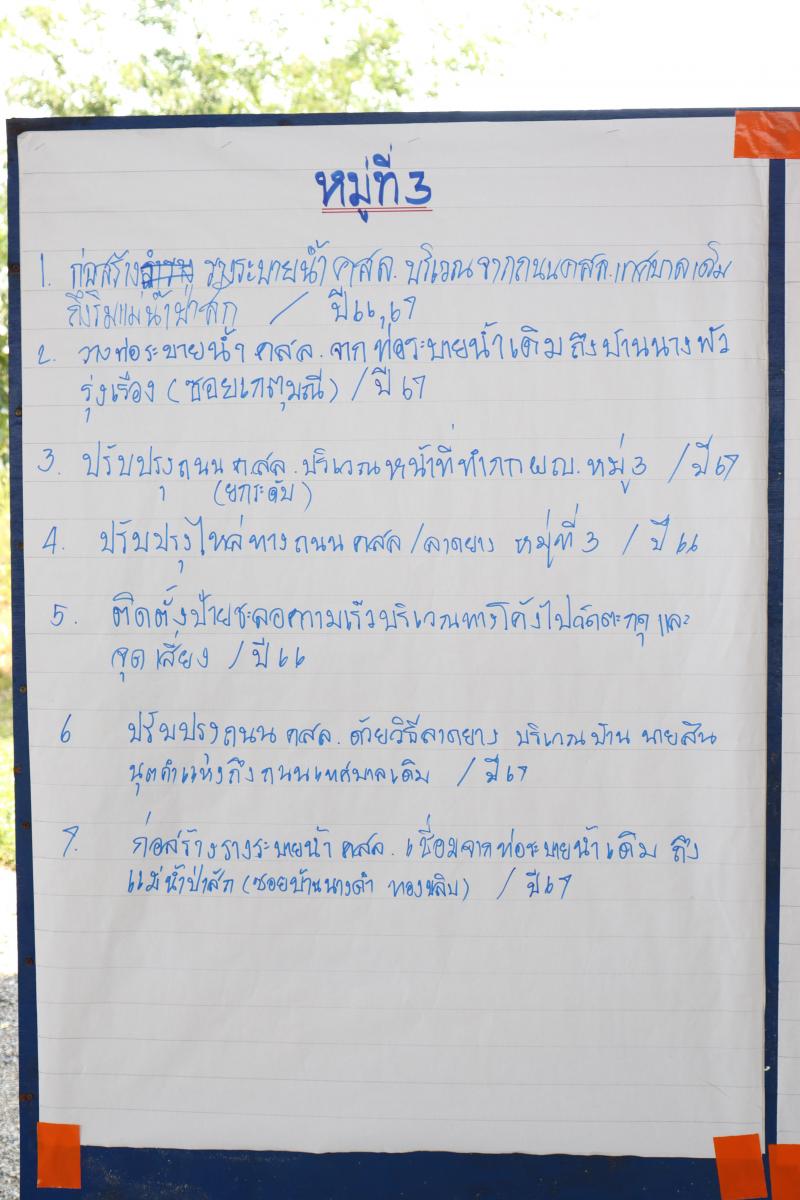 หมู่ที่ 3
1. ก่อสร้าง รางระบายน้ำ คสล. บริเวณจากถนนคสล.เทศบาลเดิม
ถึงริมแม่น้ำป่าสัก / ปี 66,67
2. วางท่อระบายน้ำ คสล. จากท่อระบายน้ำเดิม ถึงบ้านนางพัว
รุ่งเรือง (ซอยเกตุมณี) / ปี 67
3. ปรับปรุงถนน คสล. บริเวณหน้าที่ทำการ ผญบ. หมู่ 3 / ปี 67
(ยกระดับ)
4. ปรับปรุงไหล่ทางถนน คสล/ลาดยาง หมู่ที่ 3 / ปี 66
5. ติดตั้งป้ายชะลอความเร็วบริเวณทางโค้งไปวัดตะกุด และ
จุดเสี่ยง / ปี 66
6 ปรับปรุงถนน คสล. ด้วยวิธีลาดยาง บริเวณบ้าน นายสิน
นุตคำแหงถึงถนนเทศบาลเดิม / ปี 67
7. ก่อสร้างรางระบายน้ำ คสล. เชื่อมจากท่อระบายน้ำเดิม ถึง
แม่น้ำป่าสัก (ซอยบ้านนางดำ ทองขลิบ) / ปี 67